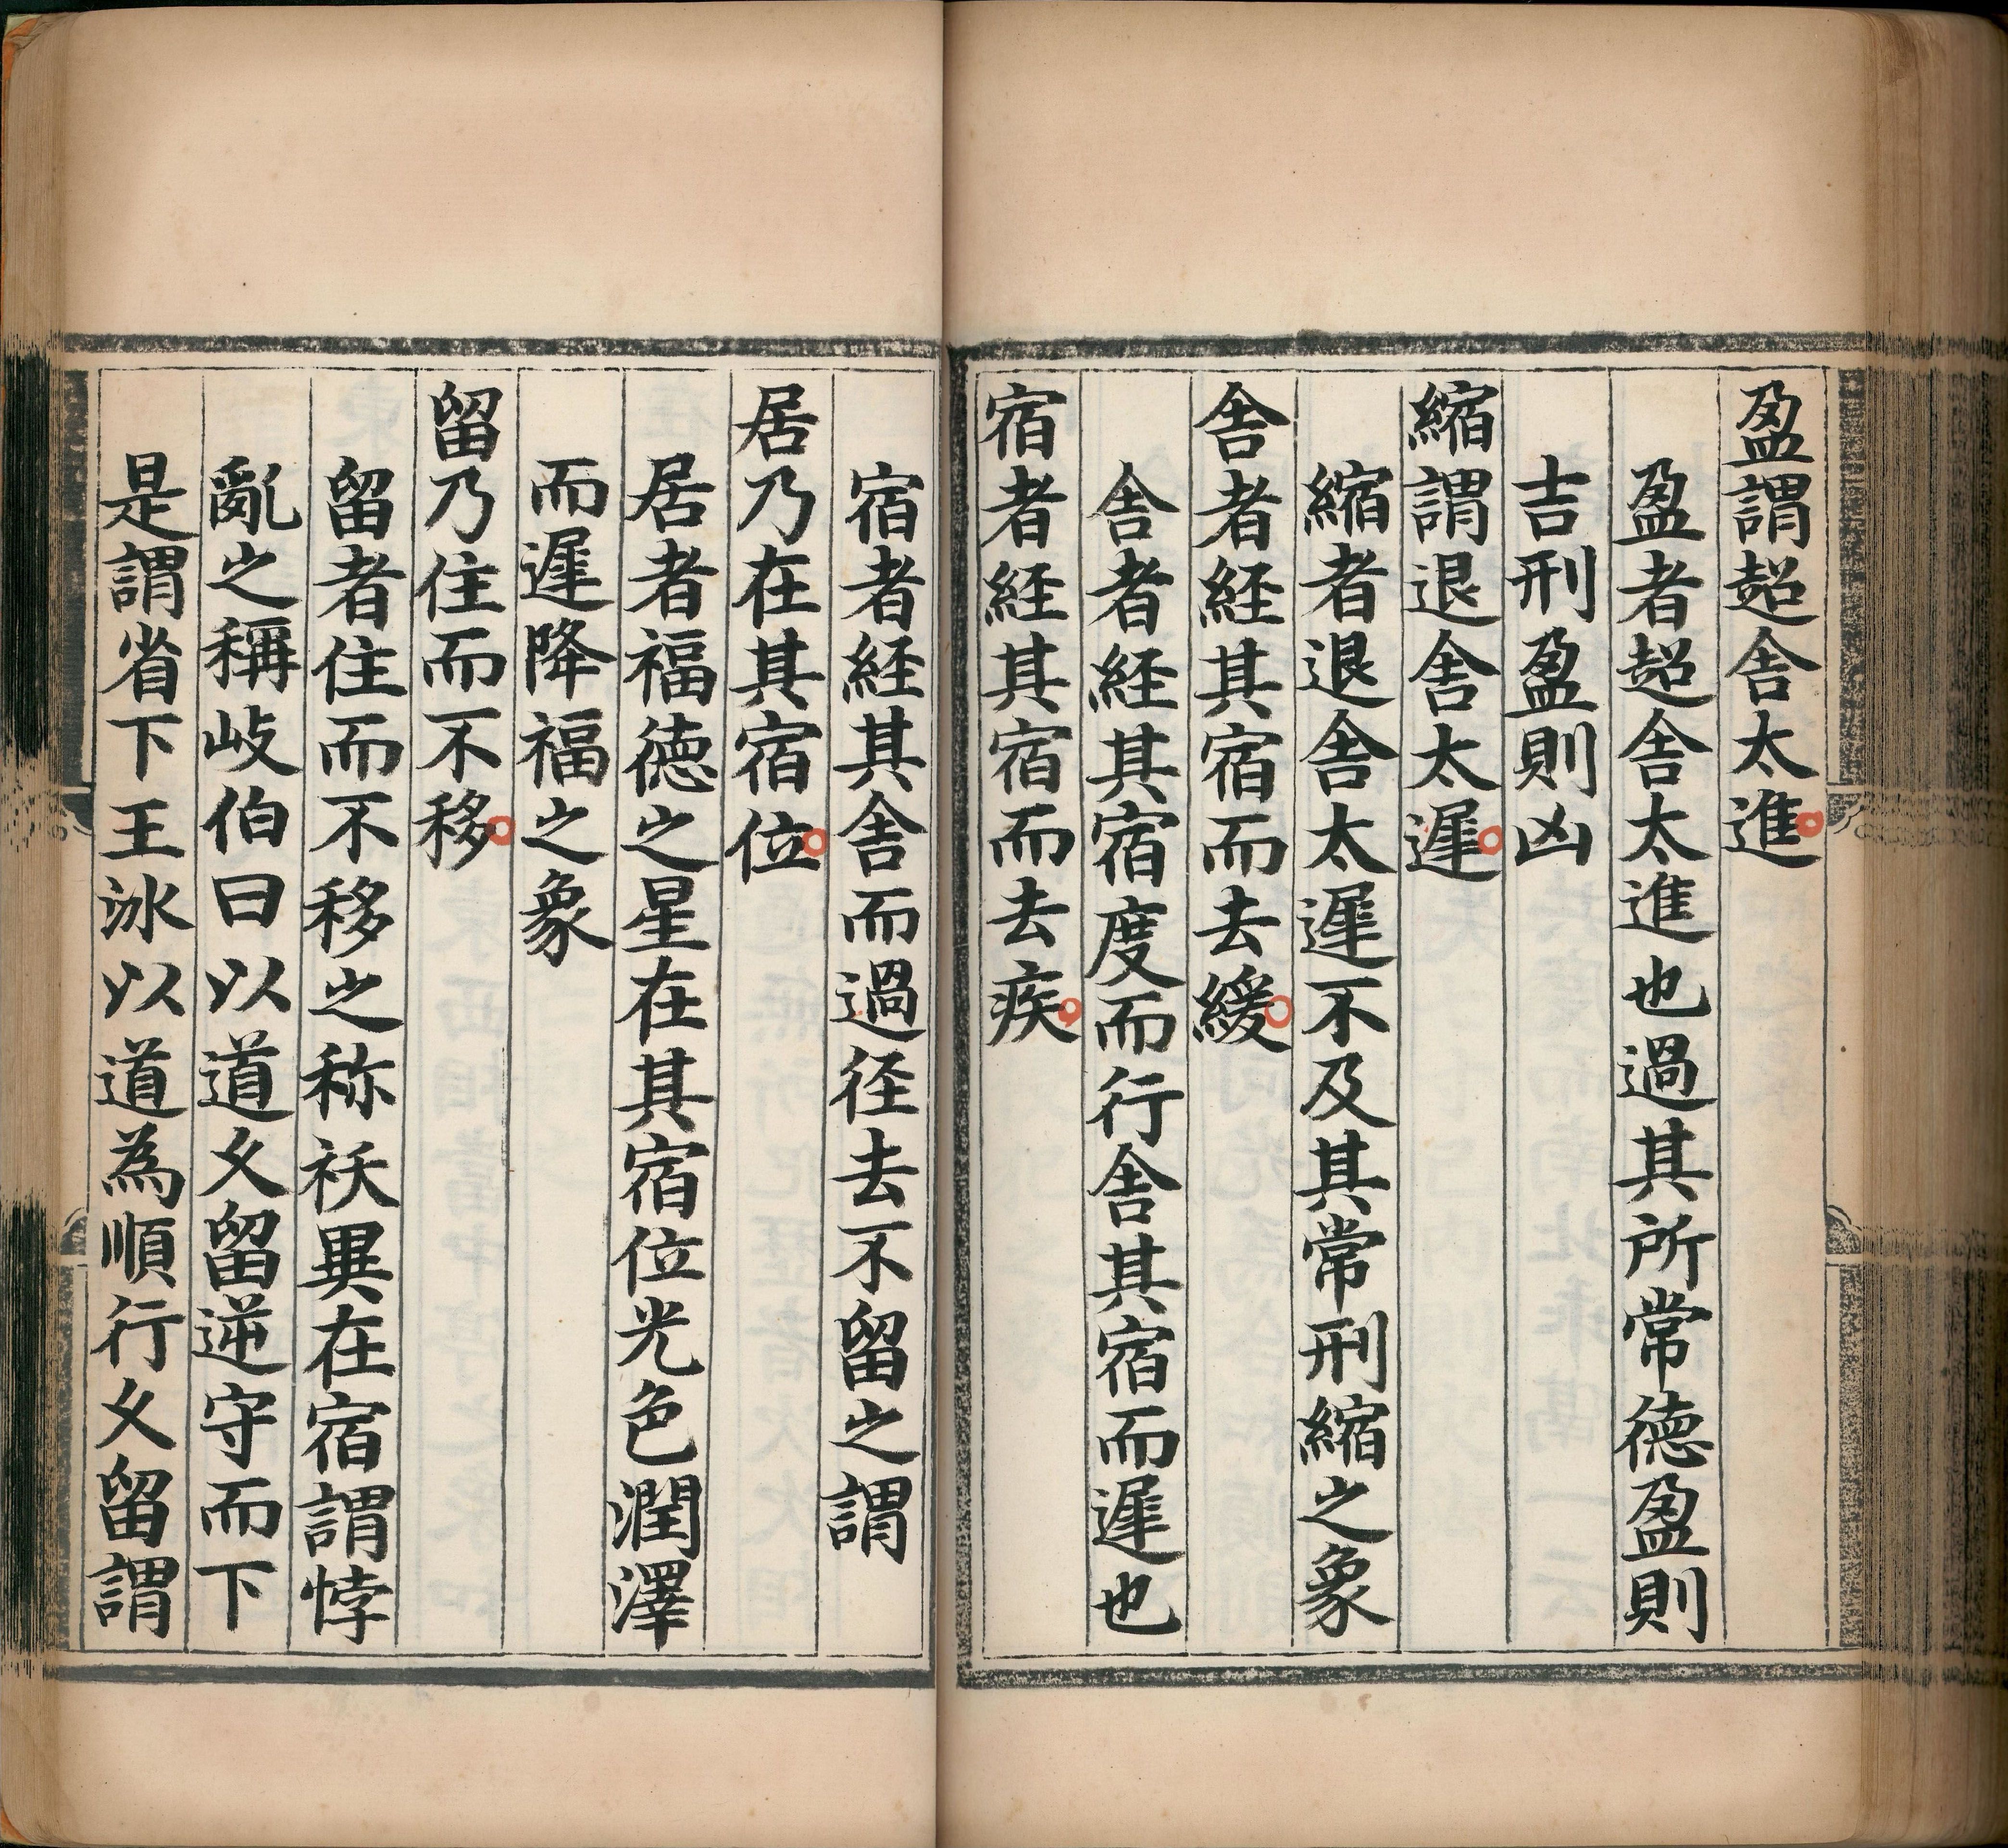 盈謂超舎太進
盈者超舎太進也過其所常徳盈則
吉刑盈則凶
縮謂退舎太遲
縮者退舎太遲不及其常刑縮之象
舎者経其宿而去緩
舎者経其宿度而行舎其宿而遲也
宿者経其宿而去疾
宿者経其舎而過径去不留之謂
居乃在其宿位
居者福徳之星在其宿位光色潤澤
而遲降福之象
留乃住而不移
留者住而不移之称祅異在宿謂悖
亂之稱岐伯曰以道乆留逆守而下
是謂省下王氷以道為順行乆留謂